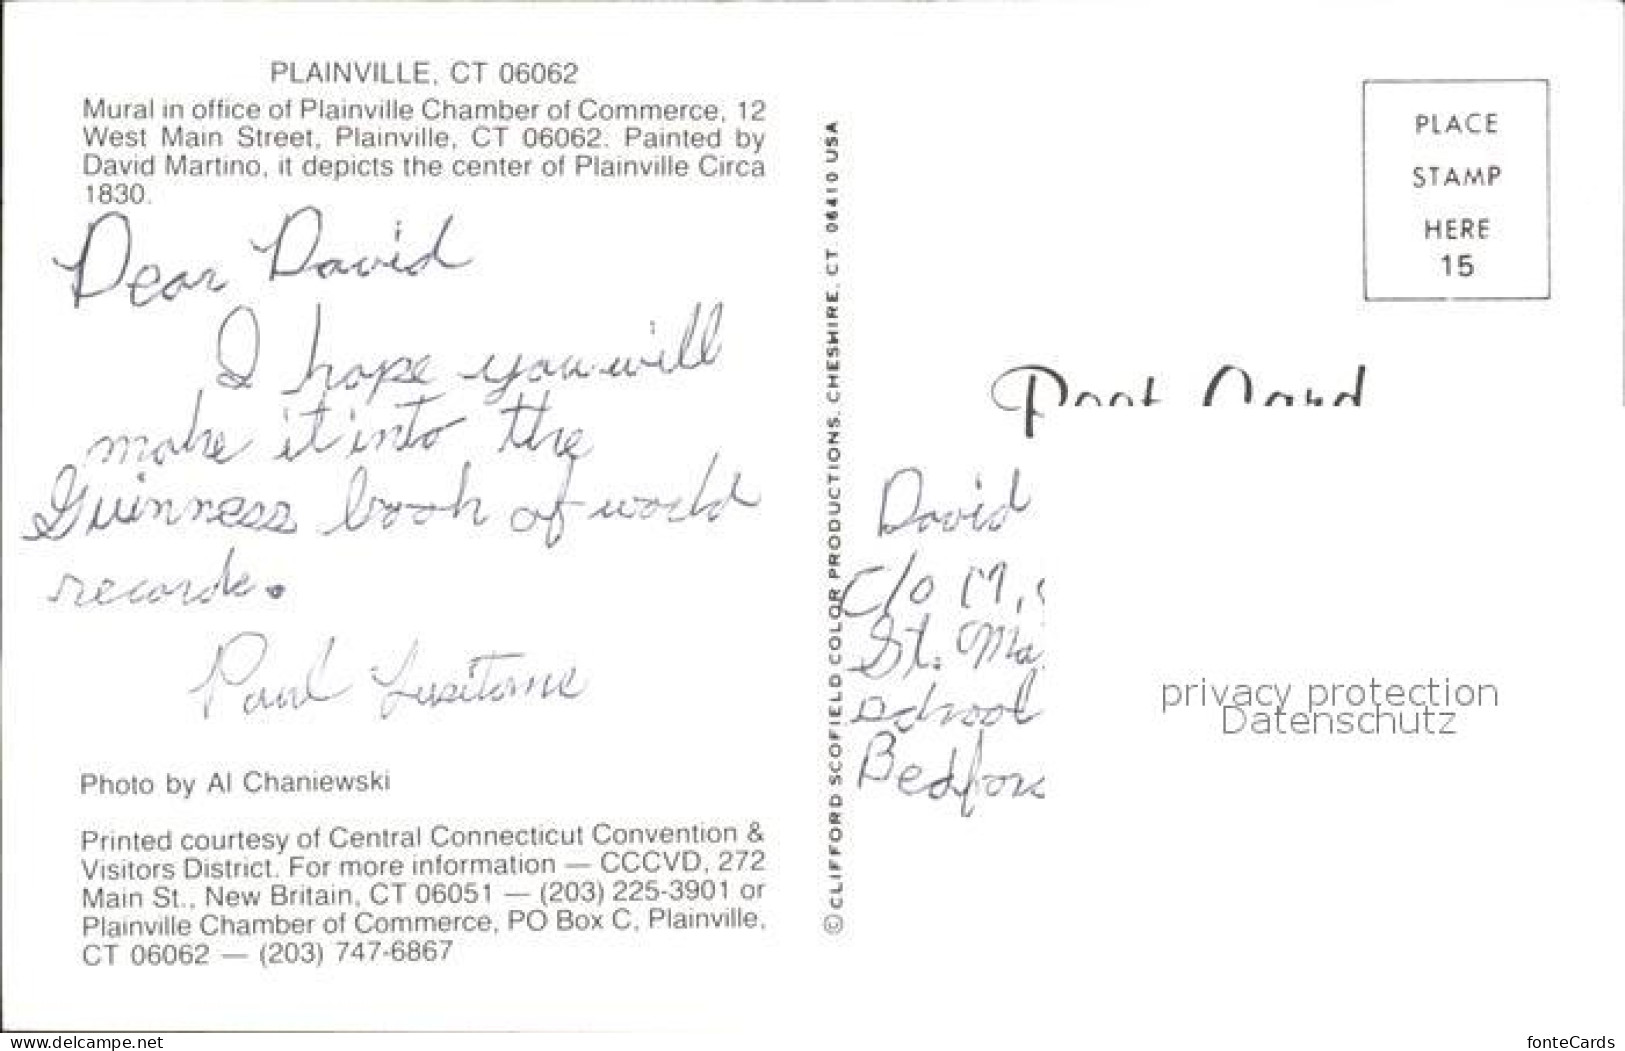 PLAINVILLE, CT 06062
Mural in office of Plainville Chamber of Commerce, 12
West Main Street, Plainville, CT 06062. Painted by
David Martino, it depicts the center of Plainville Circa
1830.
Dear David
I hope you will
make it into the
Guinness book of world
records.
Paul
Photo by Al Chaniewski
Printed courtesy of Central Connecticut Convention &
Visitors District. For more information — CCCVD, 272
Main St., New Britain, CT 06051 — (203) 225-3901 or
Plainville Chamber of Commerce, PO Box C, Plainville,
CT 06062 — (203) 747-6867
© CLIFFORD SCOFIELD COLOR PRODUCTIONS, CHESHIRE, CT. 06410 USA
PLACE
STAMP
HERE
15
Post Card
David
C/O M.
St. Ma
school
Bedfor
privacy protection
Datenschutz
www.delcampe.net
fonteCards